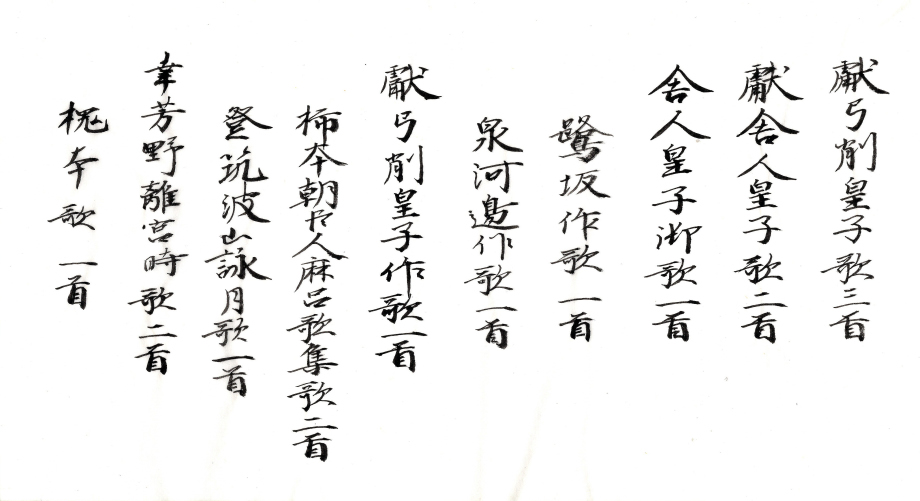 獻弓削皇子歌三首
獻舎人皇子歌二首
舎人皇子御歌一首
鷺坂作歌一首
泉河邊作歌一首
獻弓削皇子作歌一首
柿本朝臣人麻呂歌集歌二首
登筑波山詠月歌一首
幸芳野離宮時歌二首
槐本歌一首